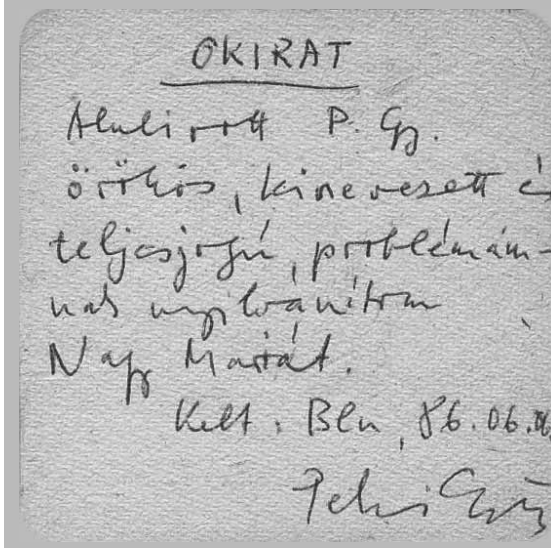 OKIRAT
Alulirott P. Gy.
örökös, kinevezett és
teljesjogú, problémám-
nak nyilvánítom
Nagy Máriát.
Kelt. Bln, 86.06.
Petri György